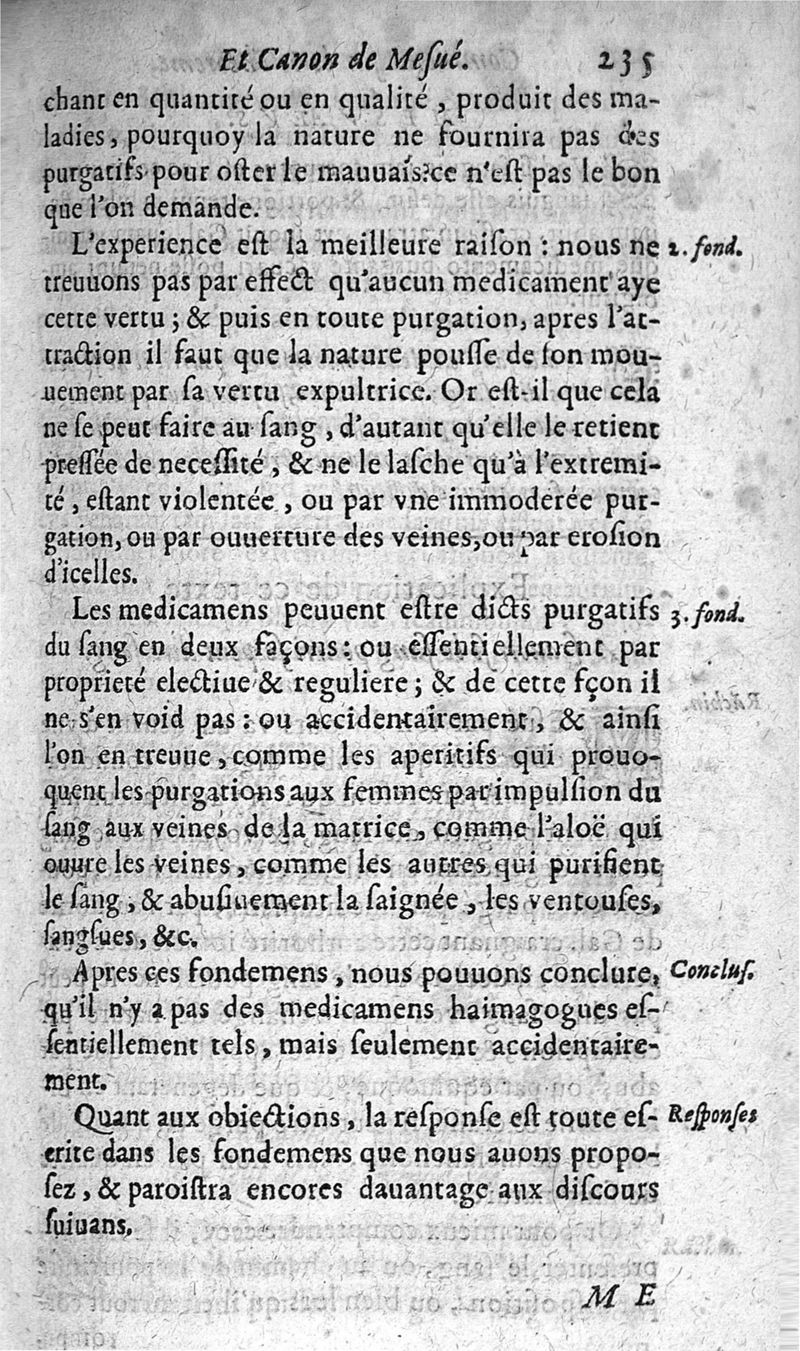 Et Canon de Meſué. 235
chant en quantité ou en qualité, produit des ma-
ladies, pourquoy la nature ne fournira pas des
purgatifs pour oſter le mauuais? ce n'eſt pas le bon
que l'on demande.
L'experience eſt la meilleure raiſon : nous ne 2. fond.
treuuons pas par effect qu'aucun medicament aye
cette vertu ; & puis en toute purgation, apres l'at-
traction il faut que la nature pouſſe de ſon mou-
uement par ſa vertu expultrice. Or eſt-il que cela
ne ſe peut faire au ſang, d'autant qu'elle le retient
preſſée de neceſſité, & ne le laſche qu'à l'extremi-
té, eſtant violentée, ou par vne immoderée pur-
gation, ou par ouuerture des veines, ou par eroſion
d'icelles.
Les medicamens peuuent eſtre dicts purgatifs 3. fond.
du ſang en deux façons : ou eſſentiellement par
proprieté electiue & reguliere ; & de cette fçon il
ne s'en void pas : ou accidentairement, & ainſi
l'on en treuue, comme les aperitifs qui prouo-
quent les purgations aux femmes par impulſion du
ſang aux veines de la matrice, comme l'aloë qui
ouure les veines, comme les autres qui purifient
le ſang, & abuſiuement la ſaignée, les ventouſes,
ſangſues, &c.
Apres ces fondemens, nous pouuons conclure, Concluſ.
qu'il n'y a pas des medicamens haimagogues eſ-
ſentiellement tels, mais ſeulement accidentaire-
ment.
Quant aux obiections, la reſponſe eſt toute eſ- Reſponſes
crite dans les fondemens que nous auons propo-
ſez, & paroiſtra encores dauantage aux diſcours
ſuiuans.
M E